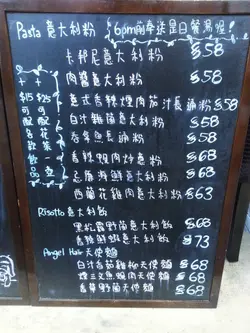 Pasta 意大利粉
6pm前奉送是日餐湯喔!
卡邦尼意大利粉 $58
肉醬意大利粉 $58
意式香辣煙肉茄汁長通粉 $58
白汁雜菌意大利粉 $58
吞拿魚長通粉 $58
香辣蜆肉炒意粉 $68
忌廉海鮮意大利粉 $68
西蘭花雞肉意大利粉 $63
+ +
$15 $25
可 可
配 配
飲 一
品
Risotto 意大利飯
黑松露野菌意大利飯 $68
香辣海鮮意大利飯 $73
Angel Hair 天使麵
白汁雞柳天使麵 $68
煙三文魚天使麵 $68
香草野菌天使麵 $68